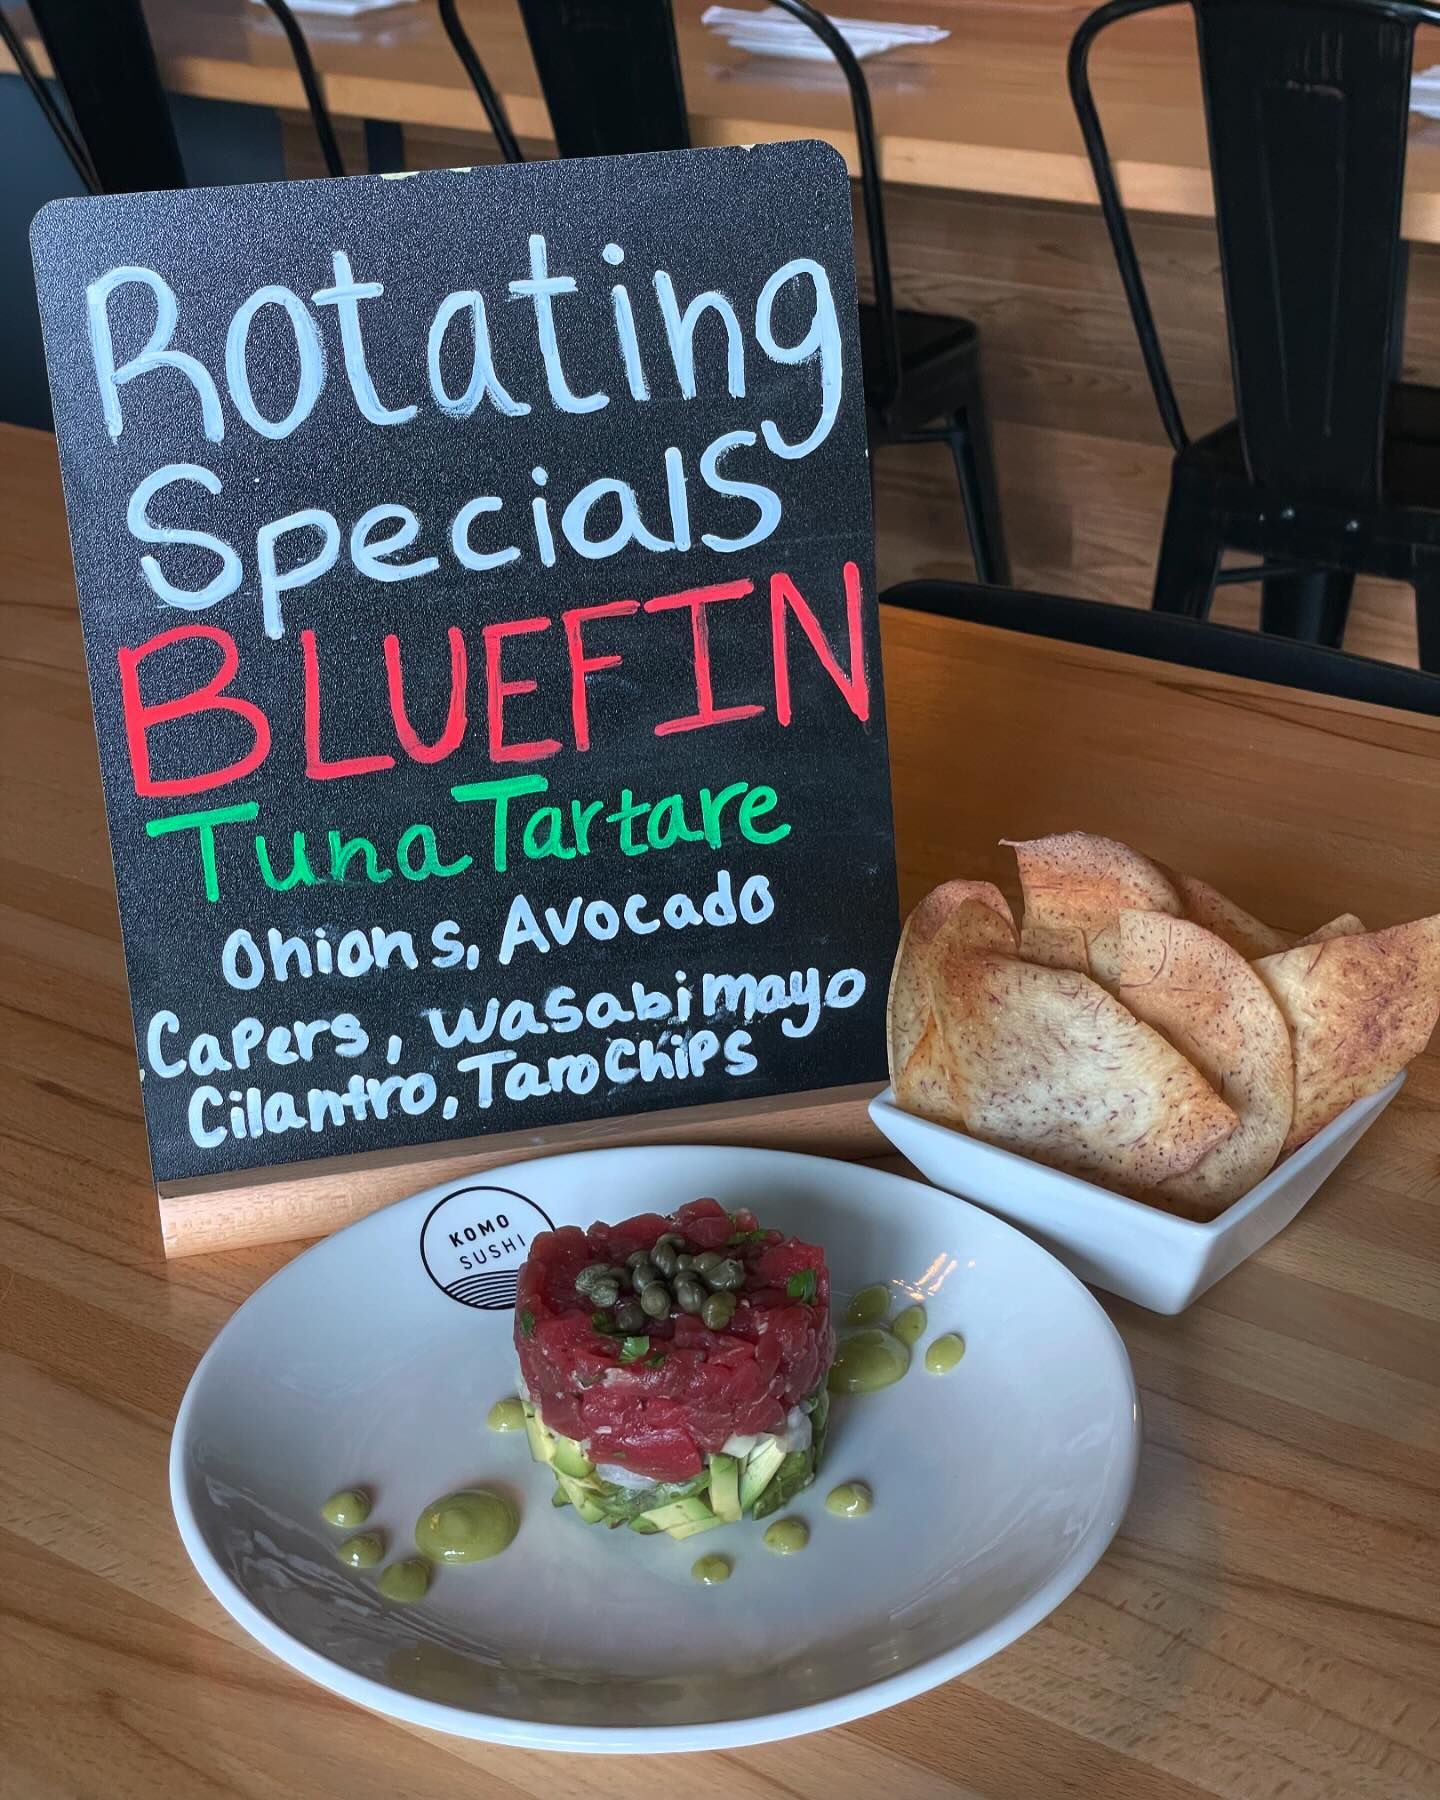 Rotating
Specials
BLUEFIN
Tuna Tartare
Onions, Avocado
Capers, wasabi mayo
Cilantro, Taro Chips
KOMO
SUSHI